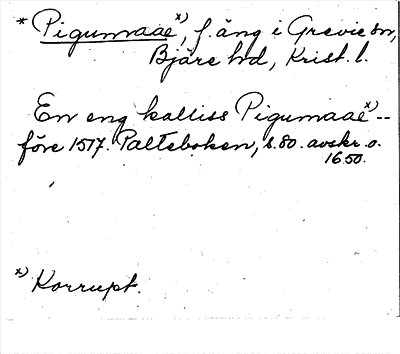 * Pigumaae x), f. äng i Grevie sn,
Bjäre hd, Krist. l.
En eng kalliss Pigumaae x) --
före 1517. Palteboken, s. 80. avskr. o.
1650.
x) Korrupt.